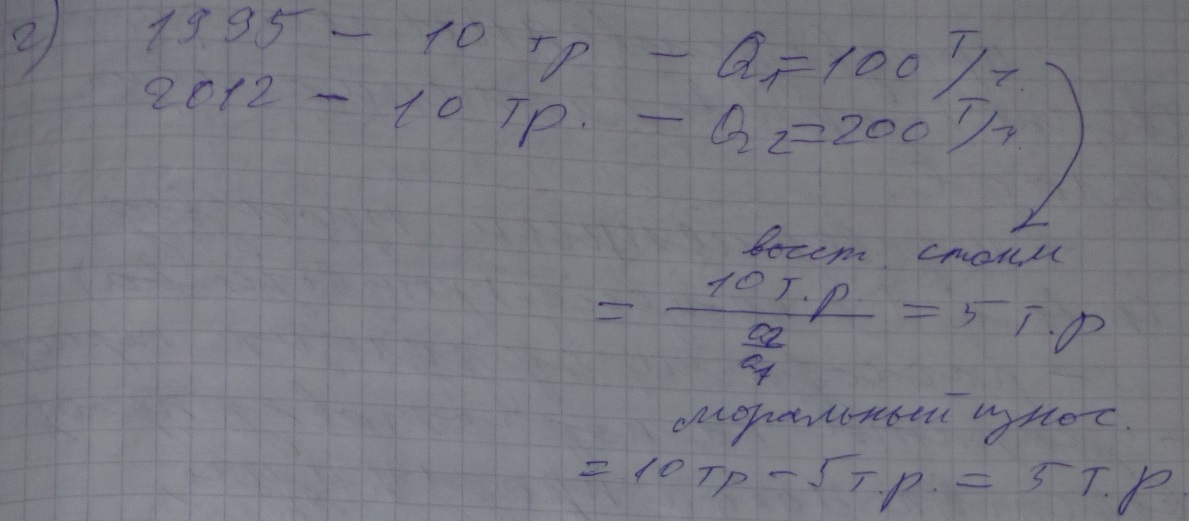 2) 1995 – 10 тр – Q1=100 Т/ч.
2012 – 10 тр. – Q2=200 Т/ч.
восст. стоим
= 10 т.р. / (Q2/Q1) = 5 т.р
моральный износ.
= 10 тр – 5 т.р. = 5 т.р